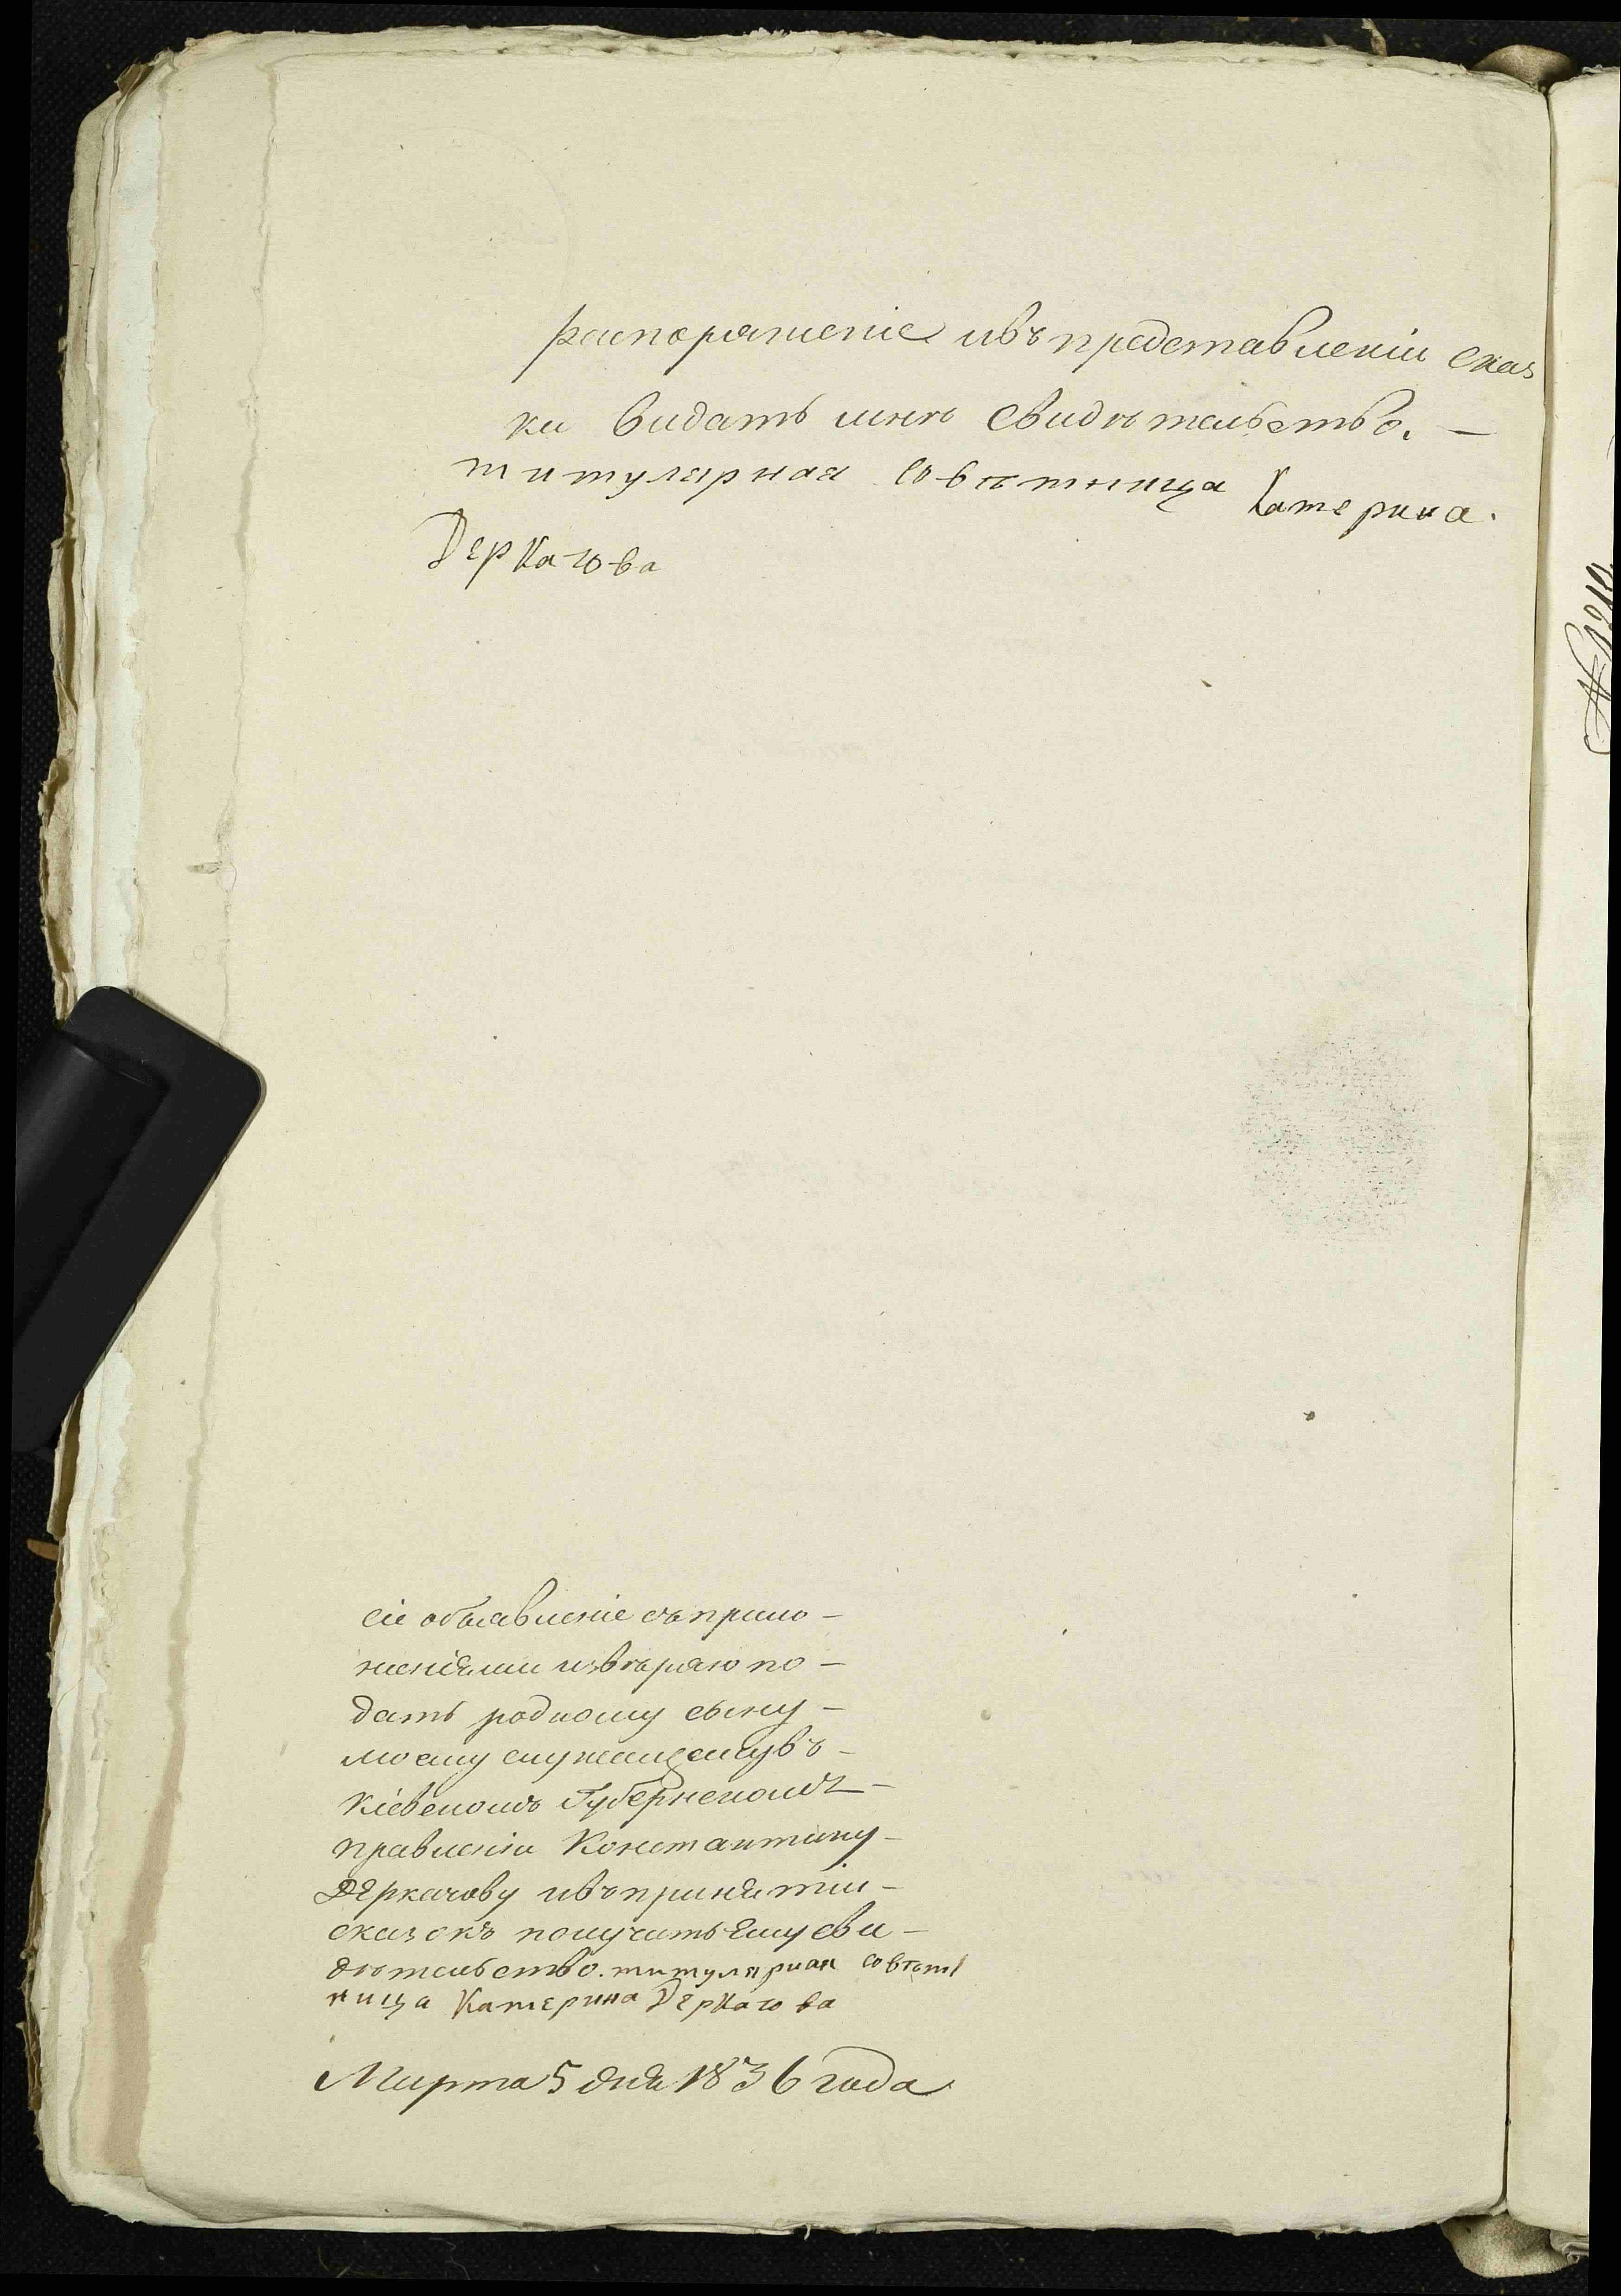 распоряженіе ивъ представленіи сказ
ки видать мнѣ свидѣтельство. —
титулярная совѣтница Катерина.
Деркачова
сіе объявленіе съ прило –
женіями ввѣряю по –
дать родному сыну –
моему служащему въ –
Кіевскомъ Губернскомъ –
правленіи Константину –
Деркачову ивъ принятіи –
сказокъ получить ему сви –
дѣтельство. титулярная совѣт
ница Катерина Деркачова
Марта 5 дня 1836 года
№ 1210